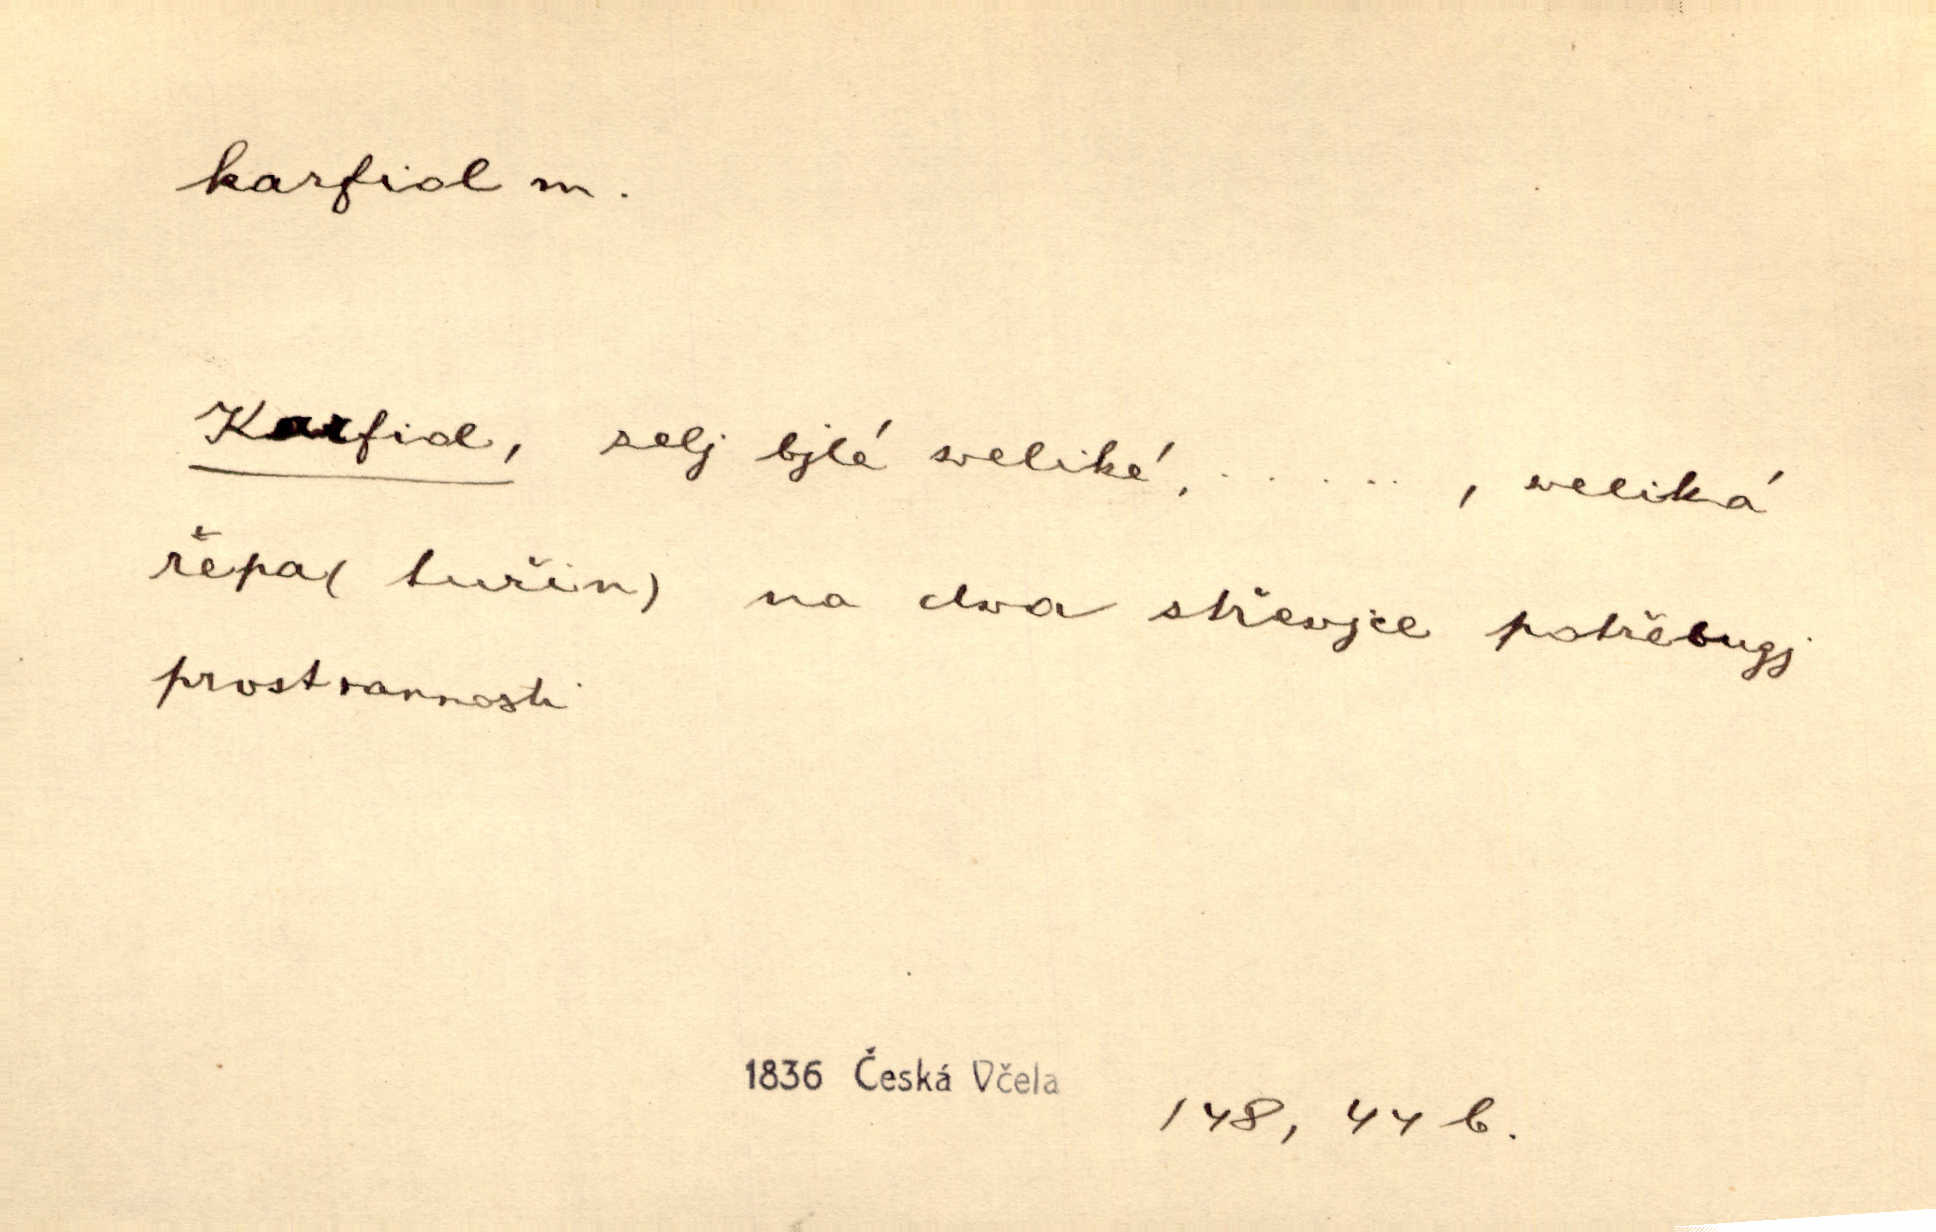 karfiol m.
Karfiol, zelj bjlé weliké, . . . . . , weliká
řepa (tuřin) na dwa střewjce potřebugj
prostrannosti
1836 Česká Včela
148, 44 b.